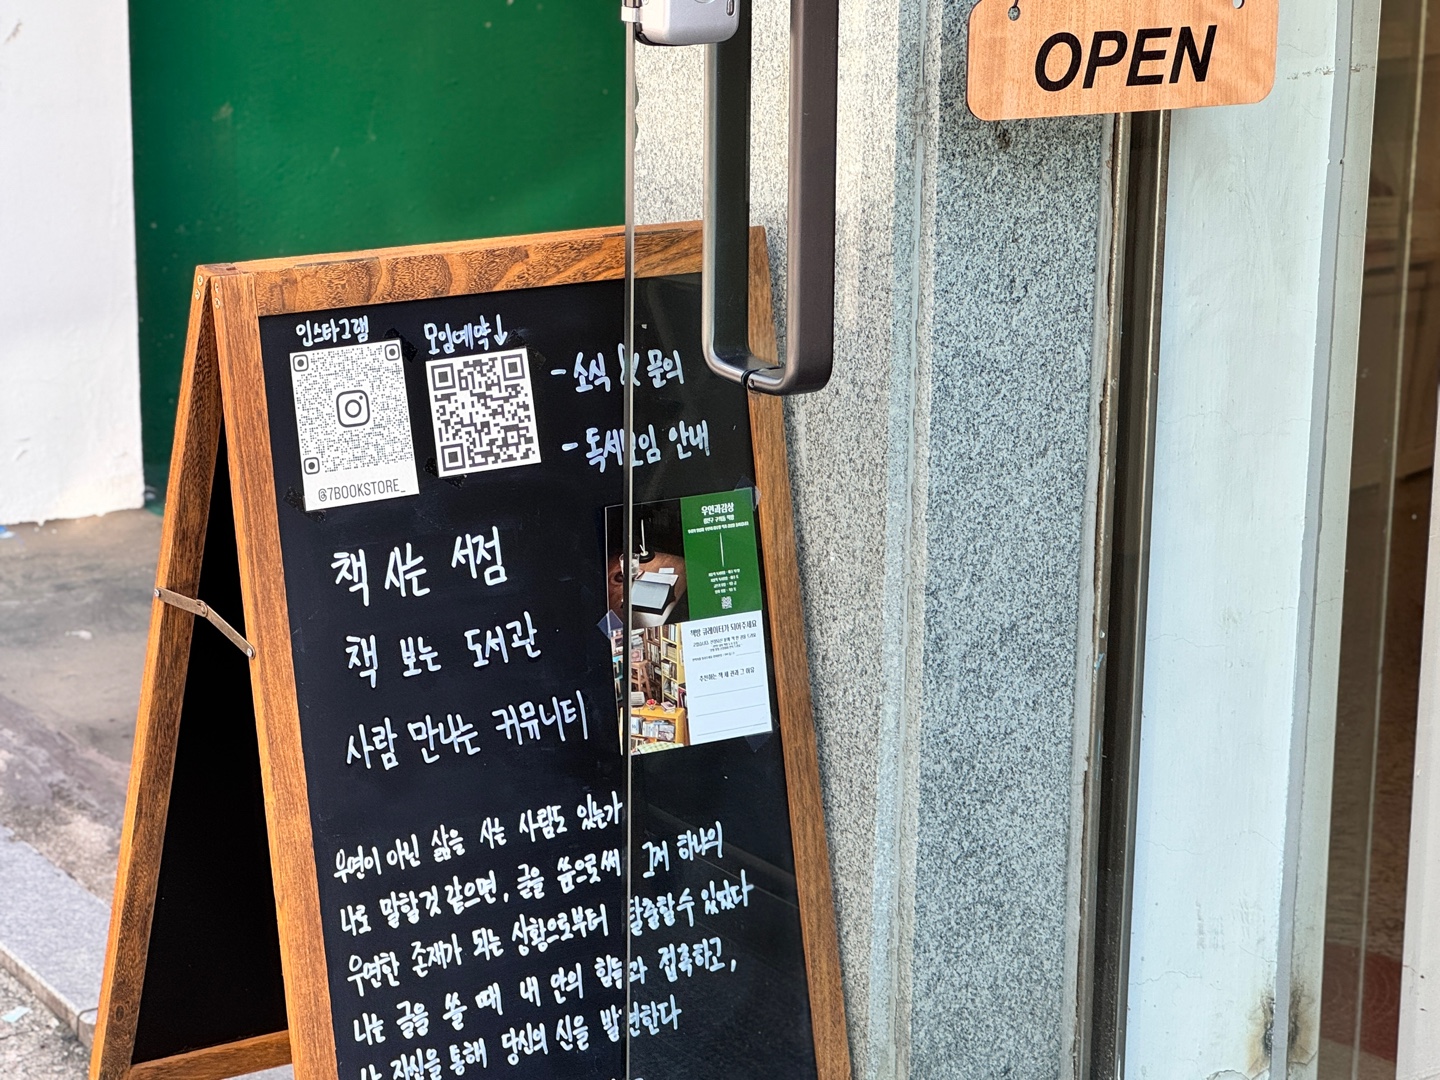 OPEN
인스타그램
모임예약↓
@7BOOKSTORE_
- 소식 & 문의
- 독서모임 안내
책 사는 서점
책 보는 도서관
사람 만나는 커뮤니티
우연과감상
책방 큐레이터가 되어주세요
추천하는 책 제목과 그 이유
우연이 아닌 삶을 사는 사람도 있는가
나로 말할것 같으면, 글을 씀으로써 그저 하나의
우연한 존재가 되는 상황으로부터 탈출할 수 있었다
나는 글을 쓸 때 내 안의 힘들과 접촉하고,
나 자신을 통해 당신의 신을 발견한다